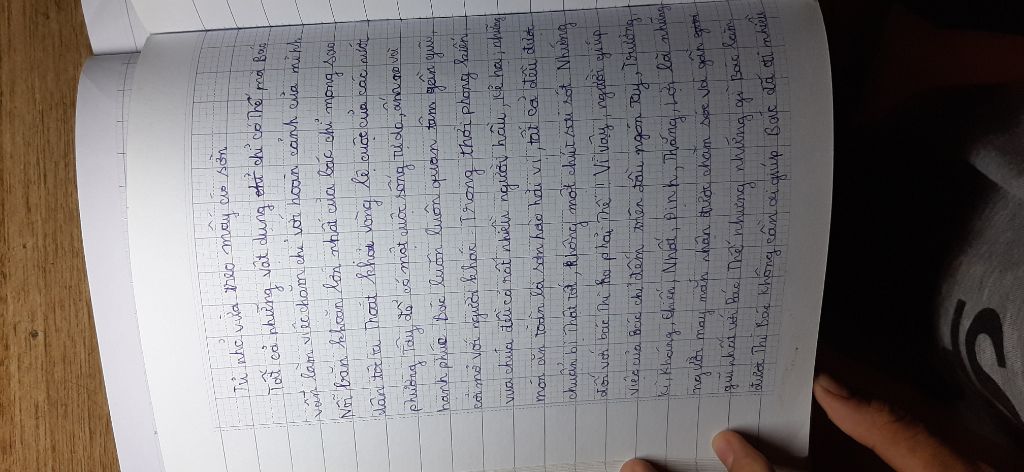 Tủ nhỏ vừa treo mấy áo sờn
Tất cả những vật dụng chỉ có thế mà Bác
vẫn làm việc chăm chỉ với hoàn cảnh của mình
Nỗi băn khoăn lớn nhất của bác chỉ mong sao
dân tộc ta thoát khỏi vòng lệ cuộc của các nước
phương Tây để có một cuộc sống tự do, ấm no và
hạnh phúc Bác luôn luôn quan tâm gần gũi,
cởi mở với người khác. Trong thời phong kiến
vua chúa đều có rất nhiều người hầu, kẻ hạ, những
món ăn toàn là sơn hào hải vị, tất cả đều được
chuẩn bị thật tốt, không một chút sai sót Nhưng
đối với bác thì ko phải thế!! Vì vậy, người giúp
việc của Bác chỉ đếm trên đầu ngón tay, Trường,
Kì, Kháng, Chiến, Nhất, Định, Thắng, Lợi, là những
người may mắn nhận được chăm sóc và gần
gũi nhất với Bác. Thế nhưng những gì Bác làm
được thì Bác không cần ai giúp Bác đã đi nhiều